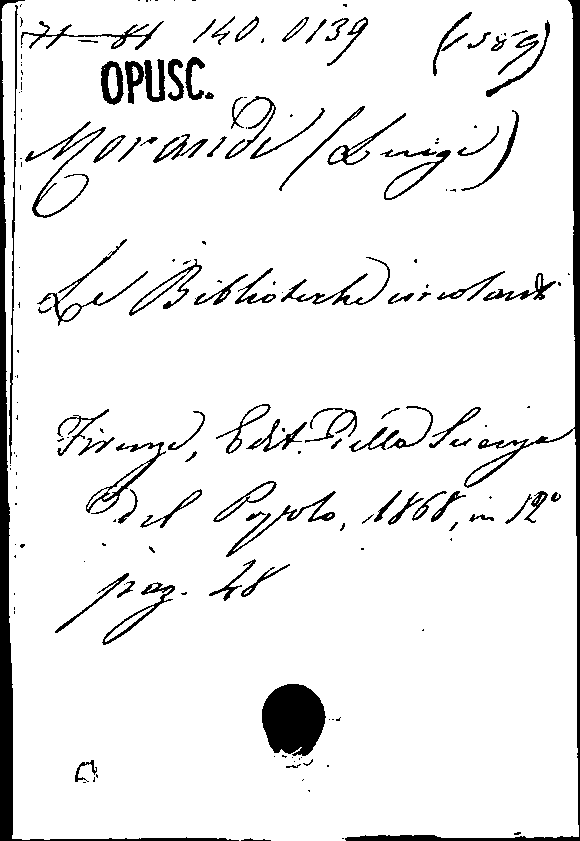 71-81 140.0139 (1589)
OPUSC.
Morandi (Luigi)
Le Biblioteche circolanti
Firenze, Edit. Della Scienza
Del Popolo, 1868, in 12°
pag. 48